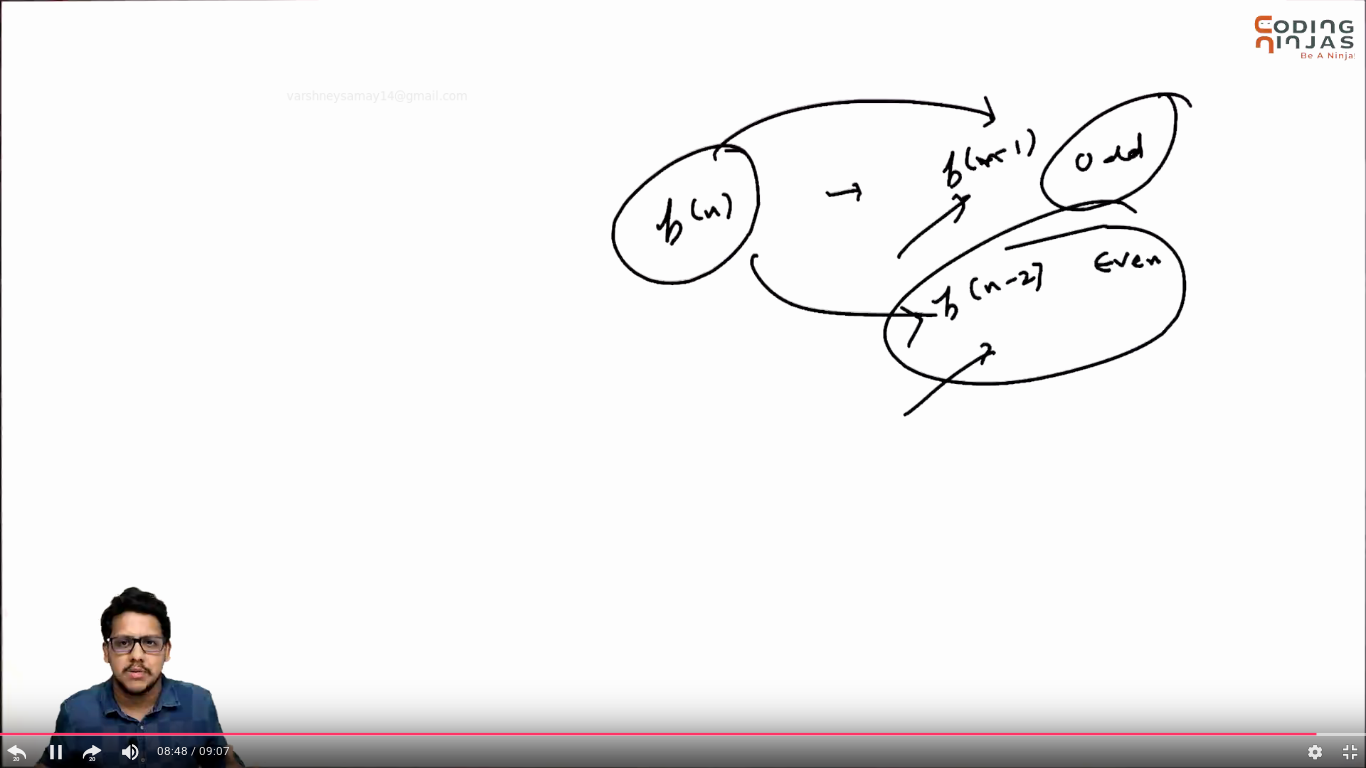 CODING
NINJAS
Be A Ninja!
varshneysamay14@gmail.com
f(n) → f(n-1) odd
f(n-2) Even
20 20 08:48 / 09:07